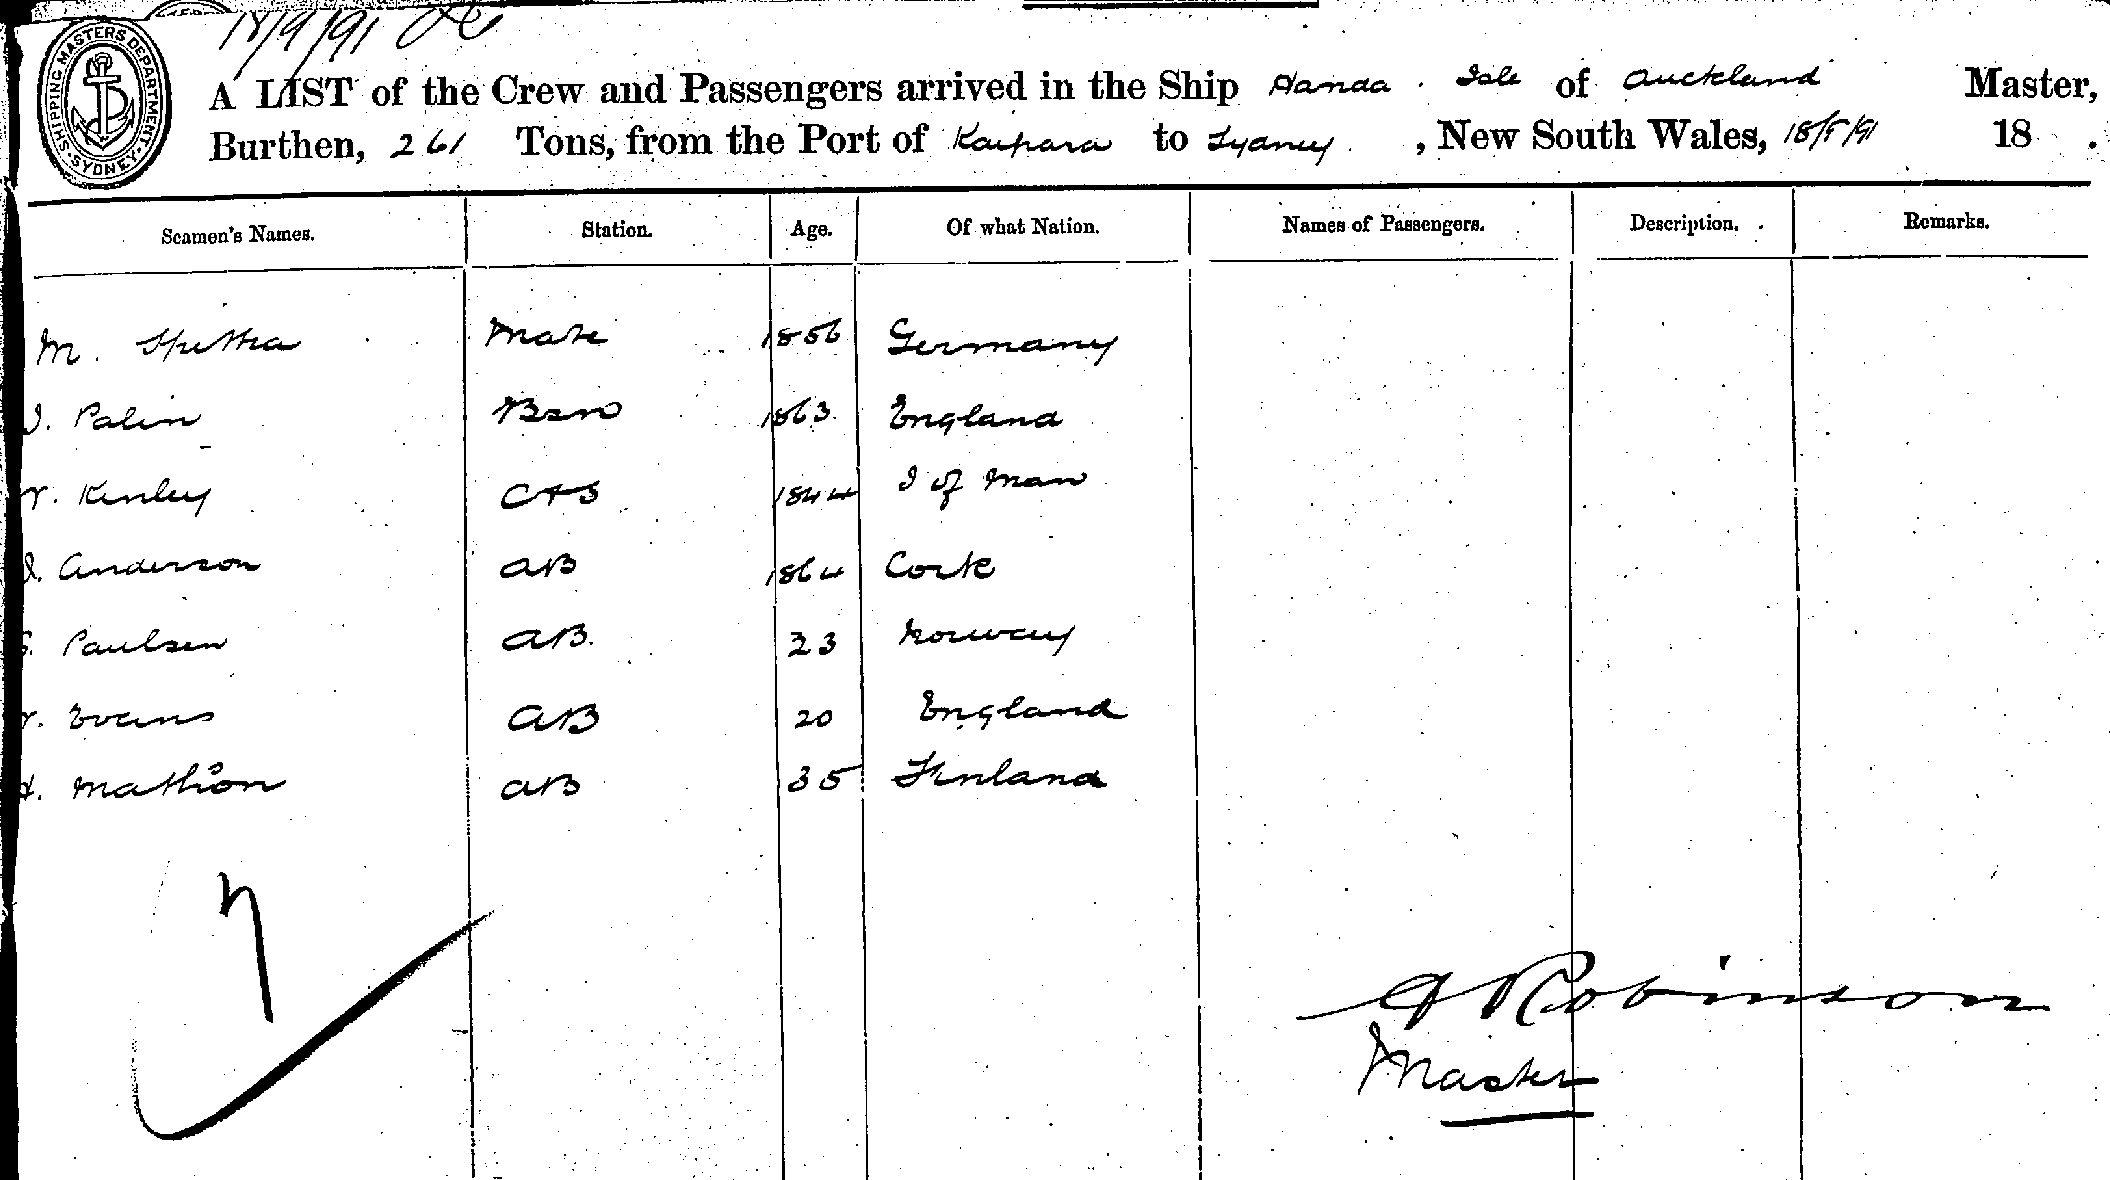 18/9/91
SHIPPING MASTERS DEPARTMENT SYDNEY
A LIST of the Crew and Passengers arrived in the Ship Handa Isle of Auckland Master,
Burthen, 261 Tons, from the Port of Kaipara to Sydney, New South Wales, 18/5/91 18 .
Seamen's Names. Station. Age. Of what Nation. Names of Passengers. Description. Remarks.
M. Mate 1856 Germany
J. Palin Bsn 1863 England
Kinley C+S 1844 I of Man
J. Anderson AB 1864 Cork
Paulsen AB. 23 Norway
Evans AB 20 England
H. Mathson AB 35 Finland
7
A Robinson
Master